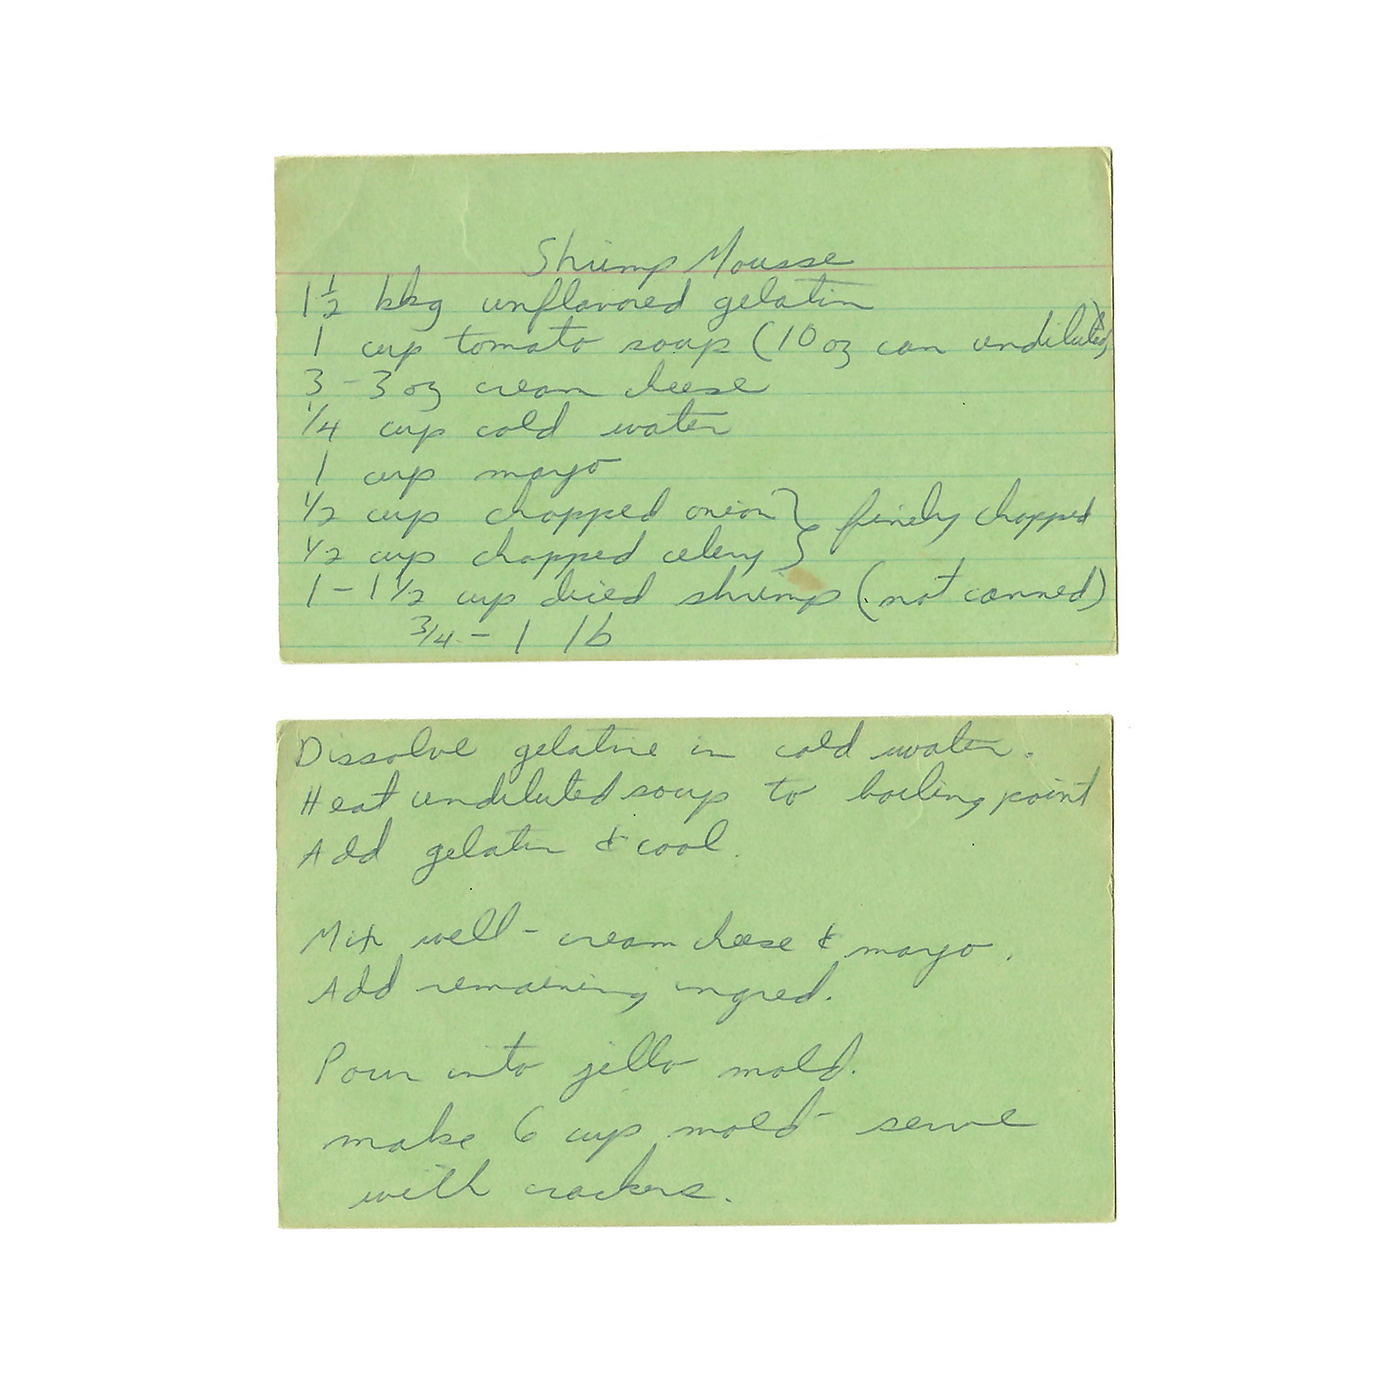 Shrimp Mousse
1 1/2 pkg unflavored gelatin
1 cup tomato soup (10 oz can undiluted)
3 - 3 oz cream cheese
1/4 cup cold water
1 cup mayo
1/2 cup chopped onion } finely chopped
1/2 cup chopped celery }
1 - 1 1/2 cup diced shrimp (not canned)
3/4 - 1 lb
Dissolve gelatine in cold water.
Heat undiluted soup to boiling point
Add gelatin & cool.
Mix well - cream cheese & mayo.
Add remaining ingred.
Pour into jello mold.
make 6 cup mold - serve
with crackers.